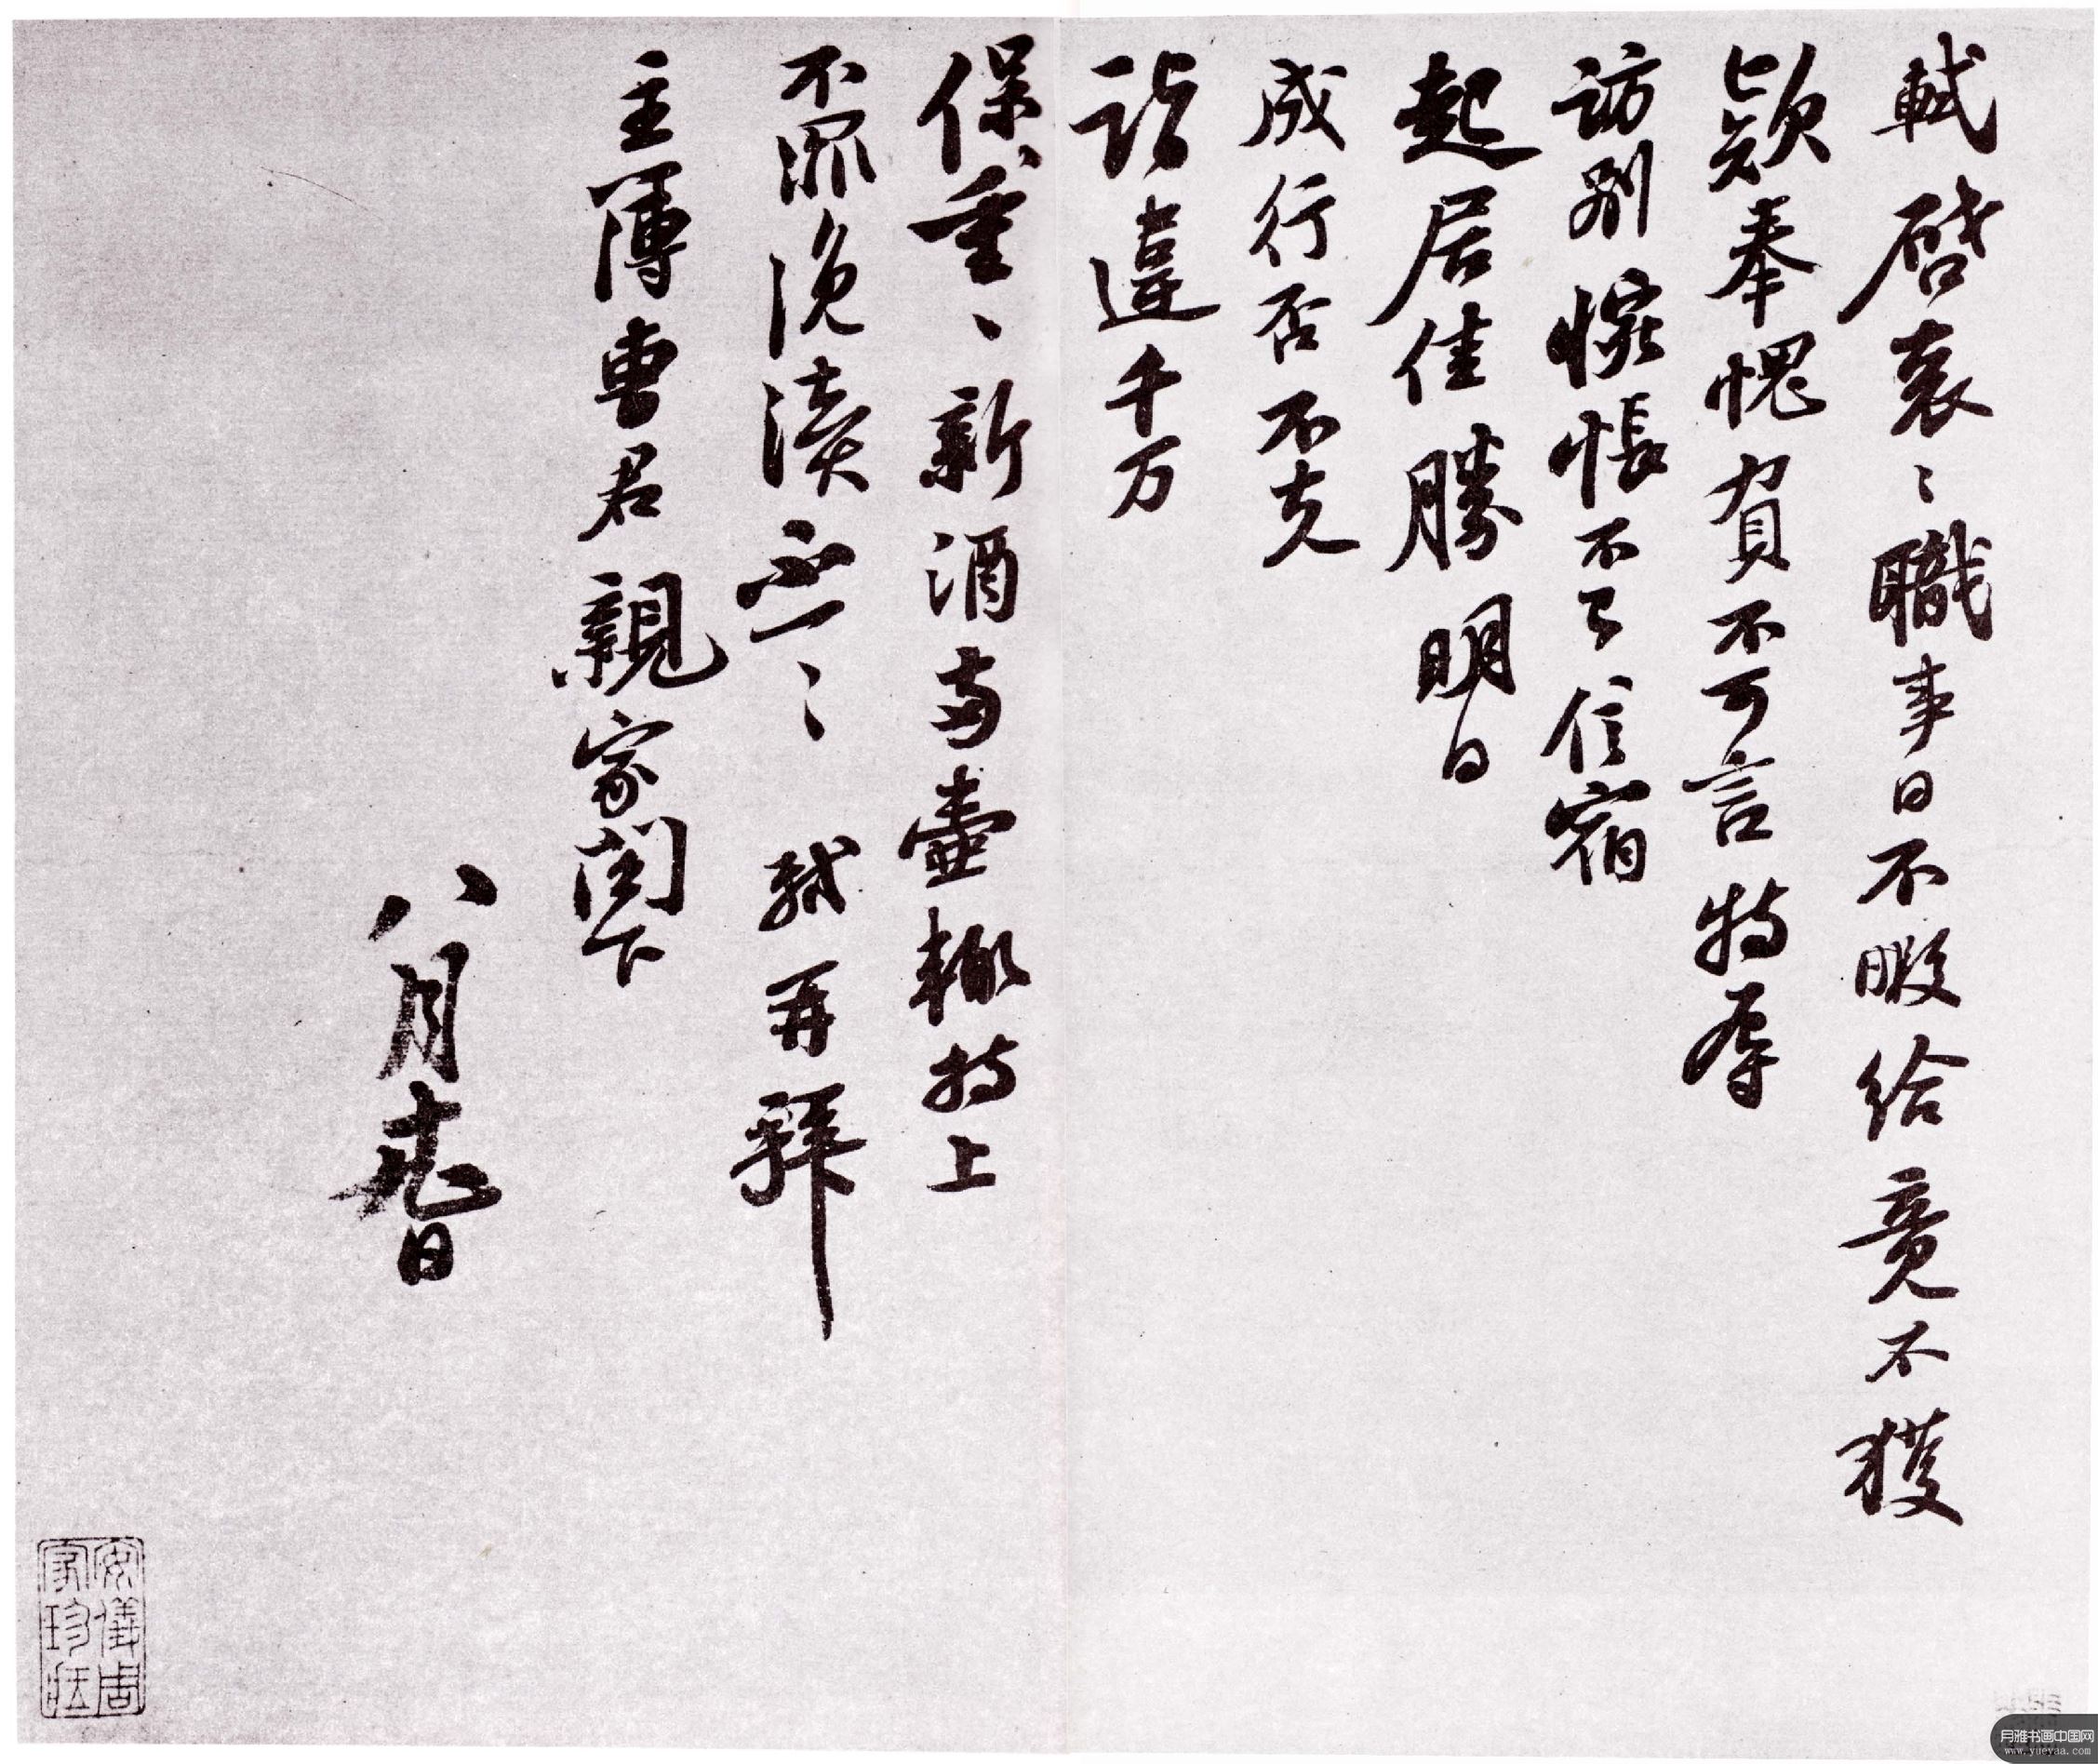 軾啓衰衰職事日不暇給竟不獲
款奉愧負不可言特辱
訪別惋悵不已信宿
起居佳勝明日
成行否不克
詣違千万
保重重新酒兩壺輒持上
不罪浼瀆不一一軾再拜
主簿曹君親家閤下
八月廿日
安儀周
家珍臧
月雅书画中国网
www.yueyaa.com